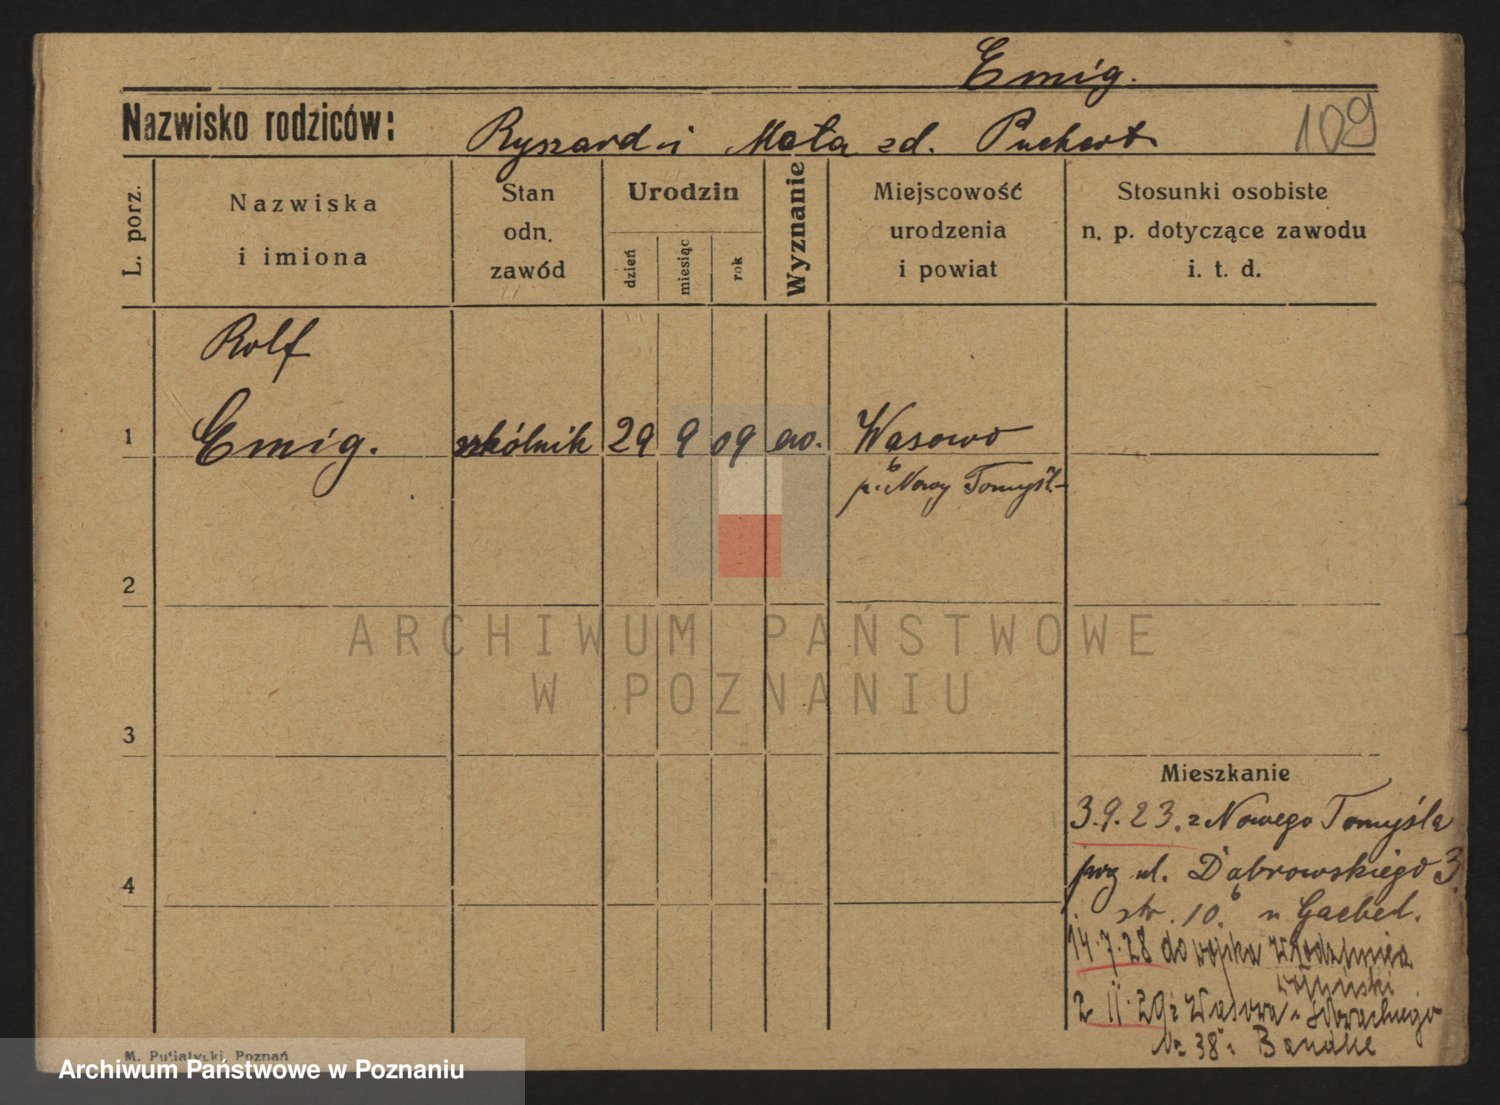 Emig.
Nazwisko rodziców: Ryszard i Meta zd. Puchert
109
L. porz.
Nazwiska
i imiona
Stan
odn.
zawód
Urodzin
dzień
miesiąc
rok
Wyznanie
Miejscowość
urodzenia
i powiat
Stosunki osobiste
n. p. dotyczące zawodu
i. t. d.
Rolf
1 Emig. szkólnik 29 9 09 ew. Wąsowo
p. Nowy Tomyśl
2
3
4
Mieszkanie
3.9.23. z Nowego Tomyśla
przy ul. Dąbrowskiego 3
str. 10. u Gaebel.
14.7.28 do wojska Włodzimierz
wołyński
2 II.29 z Wąsowa
Nr 38
M. Putiatycki, Poznań
ARCHIWUM PAŃSTWOWE
W POZNANIU
Archiwum Państwowe w Poznaniu